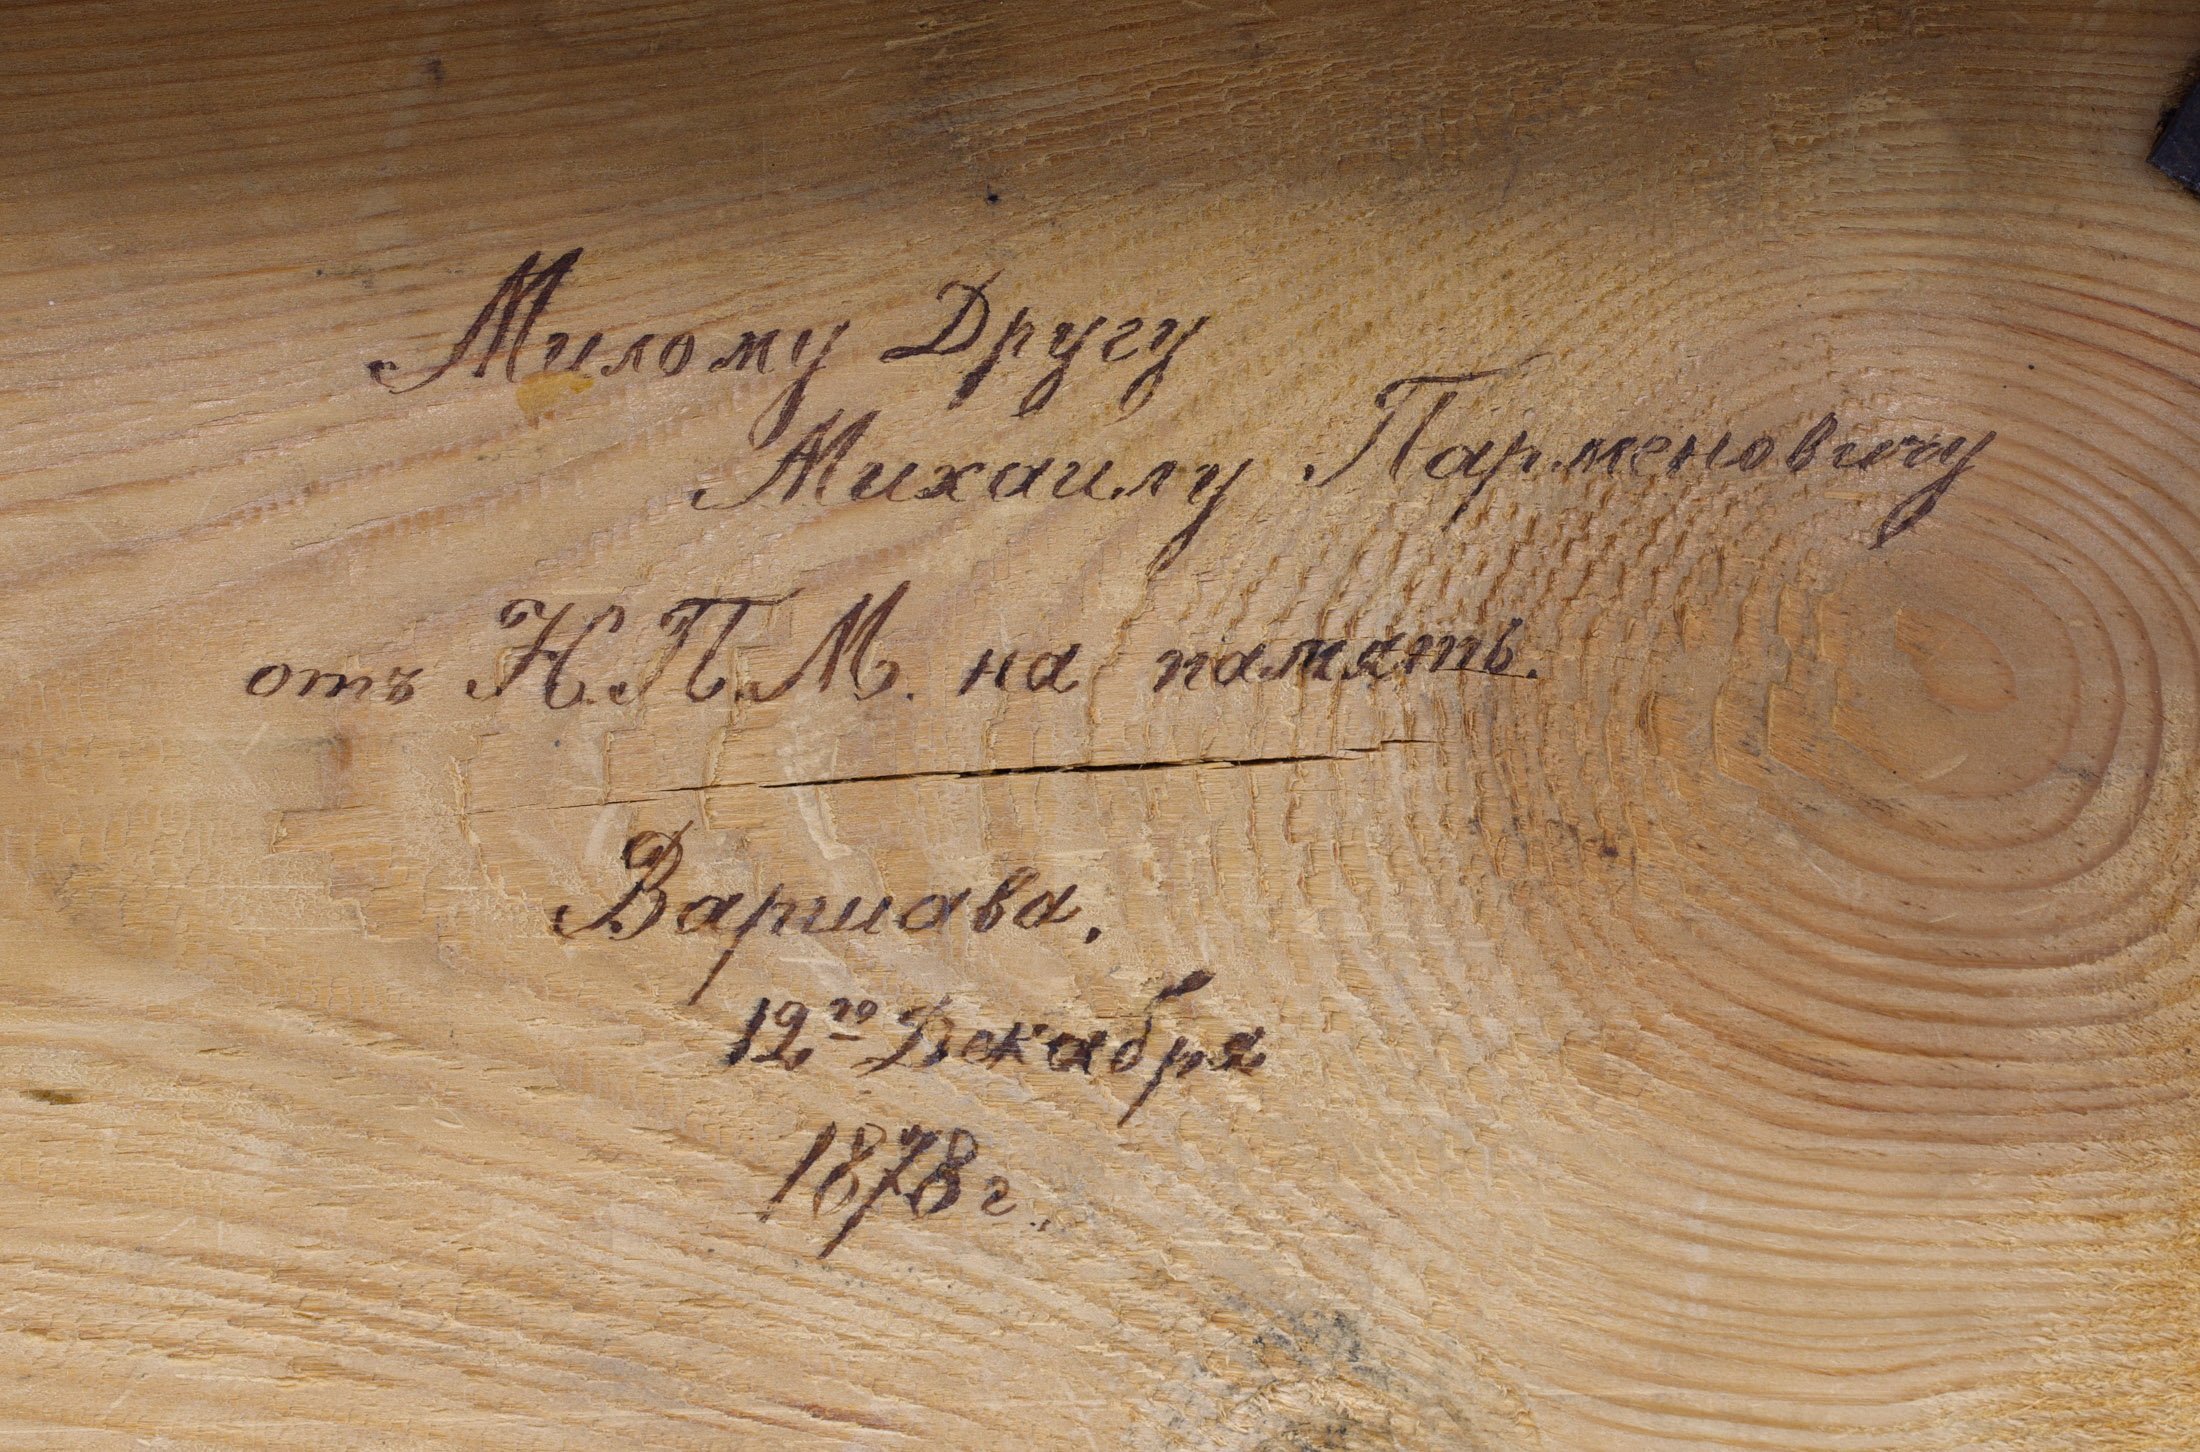 Милому Другу
Михаилу Парменовичу
отъ Н.П.М. на память.
Варшава.
12го Декабря
1878 г.